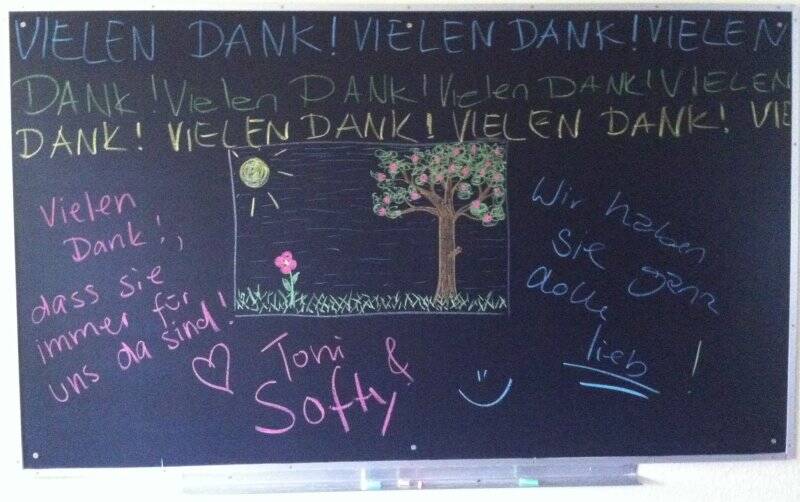 VIELEN DANK! VIELEN DANK! VIELEN
DANK! Vielen DANK! Vielen DANK! VIELEN
DANK! VIELEN DANK! VIELEN DANK! VIE
Vielen
Dank!,
dass sie
immer für
uns da sind!
Toni &
Softy
Wir haben
Sie ganz
dolle
lieb!